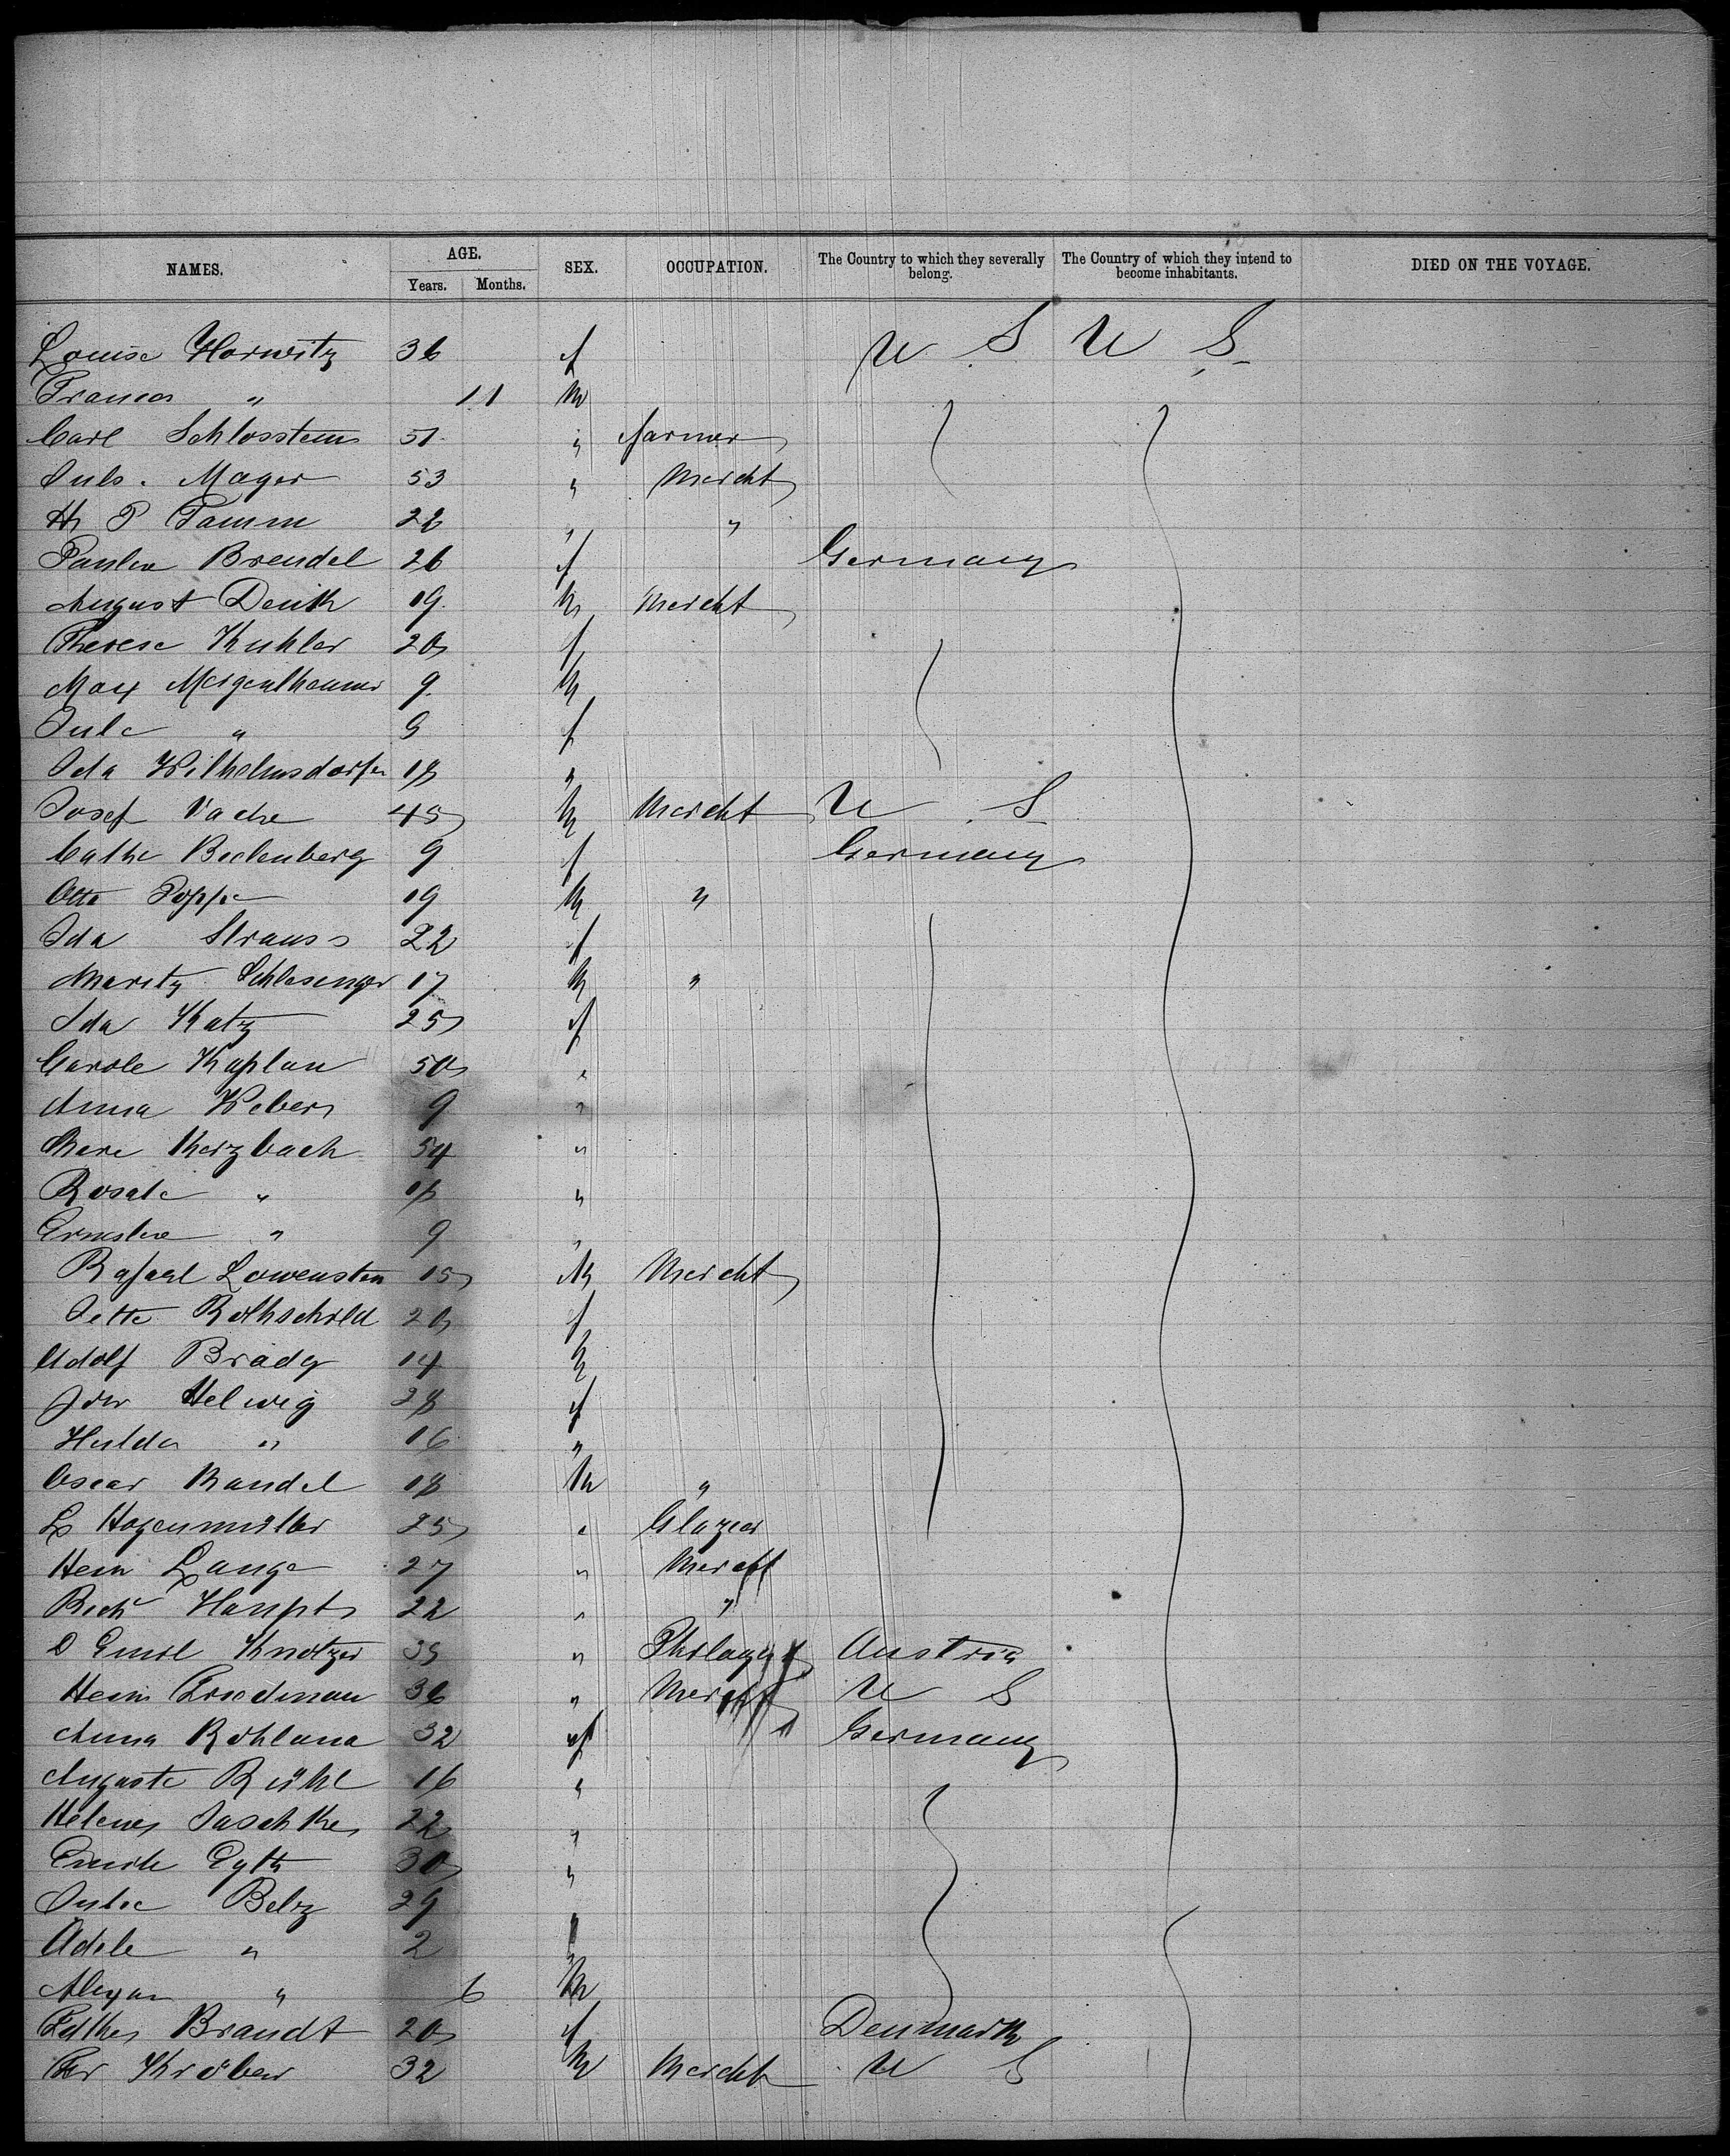 NAMES. AGE. Years. Months. SEX. OCCUPATION. The Country to which they severally belong. The Country of which they intend to become inhabitants. DIED ON THE VOYAGE.
Louise Horwitz 36 f U S U S
Frances " 11 m
Carl Schlosstein 51 " farmer
Juls. Mayer 53 " Mercht
H P Tamm 22 " "
Pauline Brendel 26 f Germany
August Deuth 19 m Mercht
Therese Kuhler 20 f
Max Mergenthaumer 9 m
Jule " 9 f
Ida Wilhelmsdorfer 18 "
Josef Vache 45 m Mercht U S
Cathe Bodenberg 9 f Germany
Otto Poppe 19 m "
Ida Strauss 22 f
Moritz Schlesinger 17 m "
Ida Katz 25 f
Carole Kaplan 50 "
Anna Weber 9 "
Merzbach 54 "
Rosale " 18 "
Ernestine " 9 "
Rafael Lowenstein 15 m Mercht
Jette Rothschild 20 f
Adolf Brady 14 m
Helwig 28 f
Hulda " 16 "
Oscar Mandel 18 m "
L Hagenmüller 25 " Glazier
Hein Lange 27 " Mercht
Rich Haupt 22 " "
D Emil Knotzer 35 " Austria
Hein Friedman 36 " Mercht U S
Anna 32 f Germany
Auguste Rühl 16 "
Helene Jaschke 22 "
Emile Eyth 30 "
Julie Belz 29 "
Adele " 2 "
" 6 m
Brandt 20 f Denmark
Fr Kröber 32 m Mercht U S